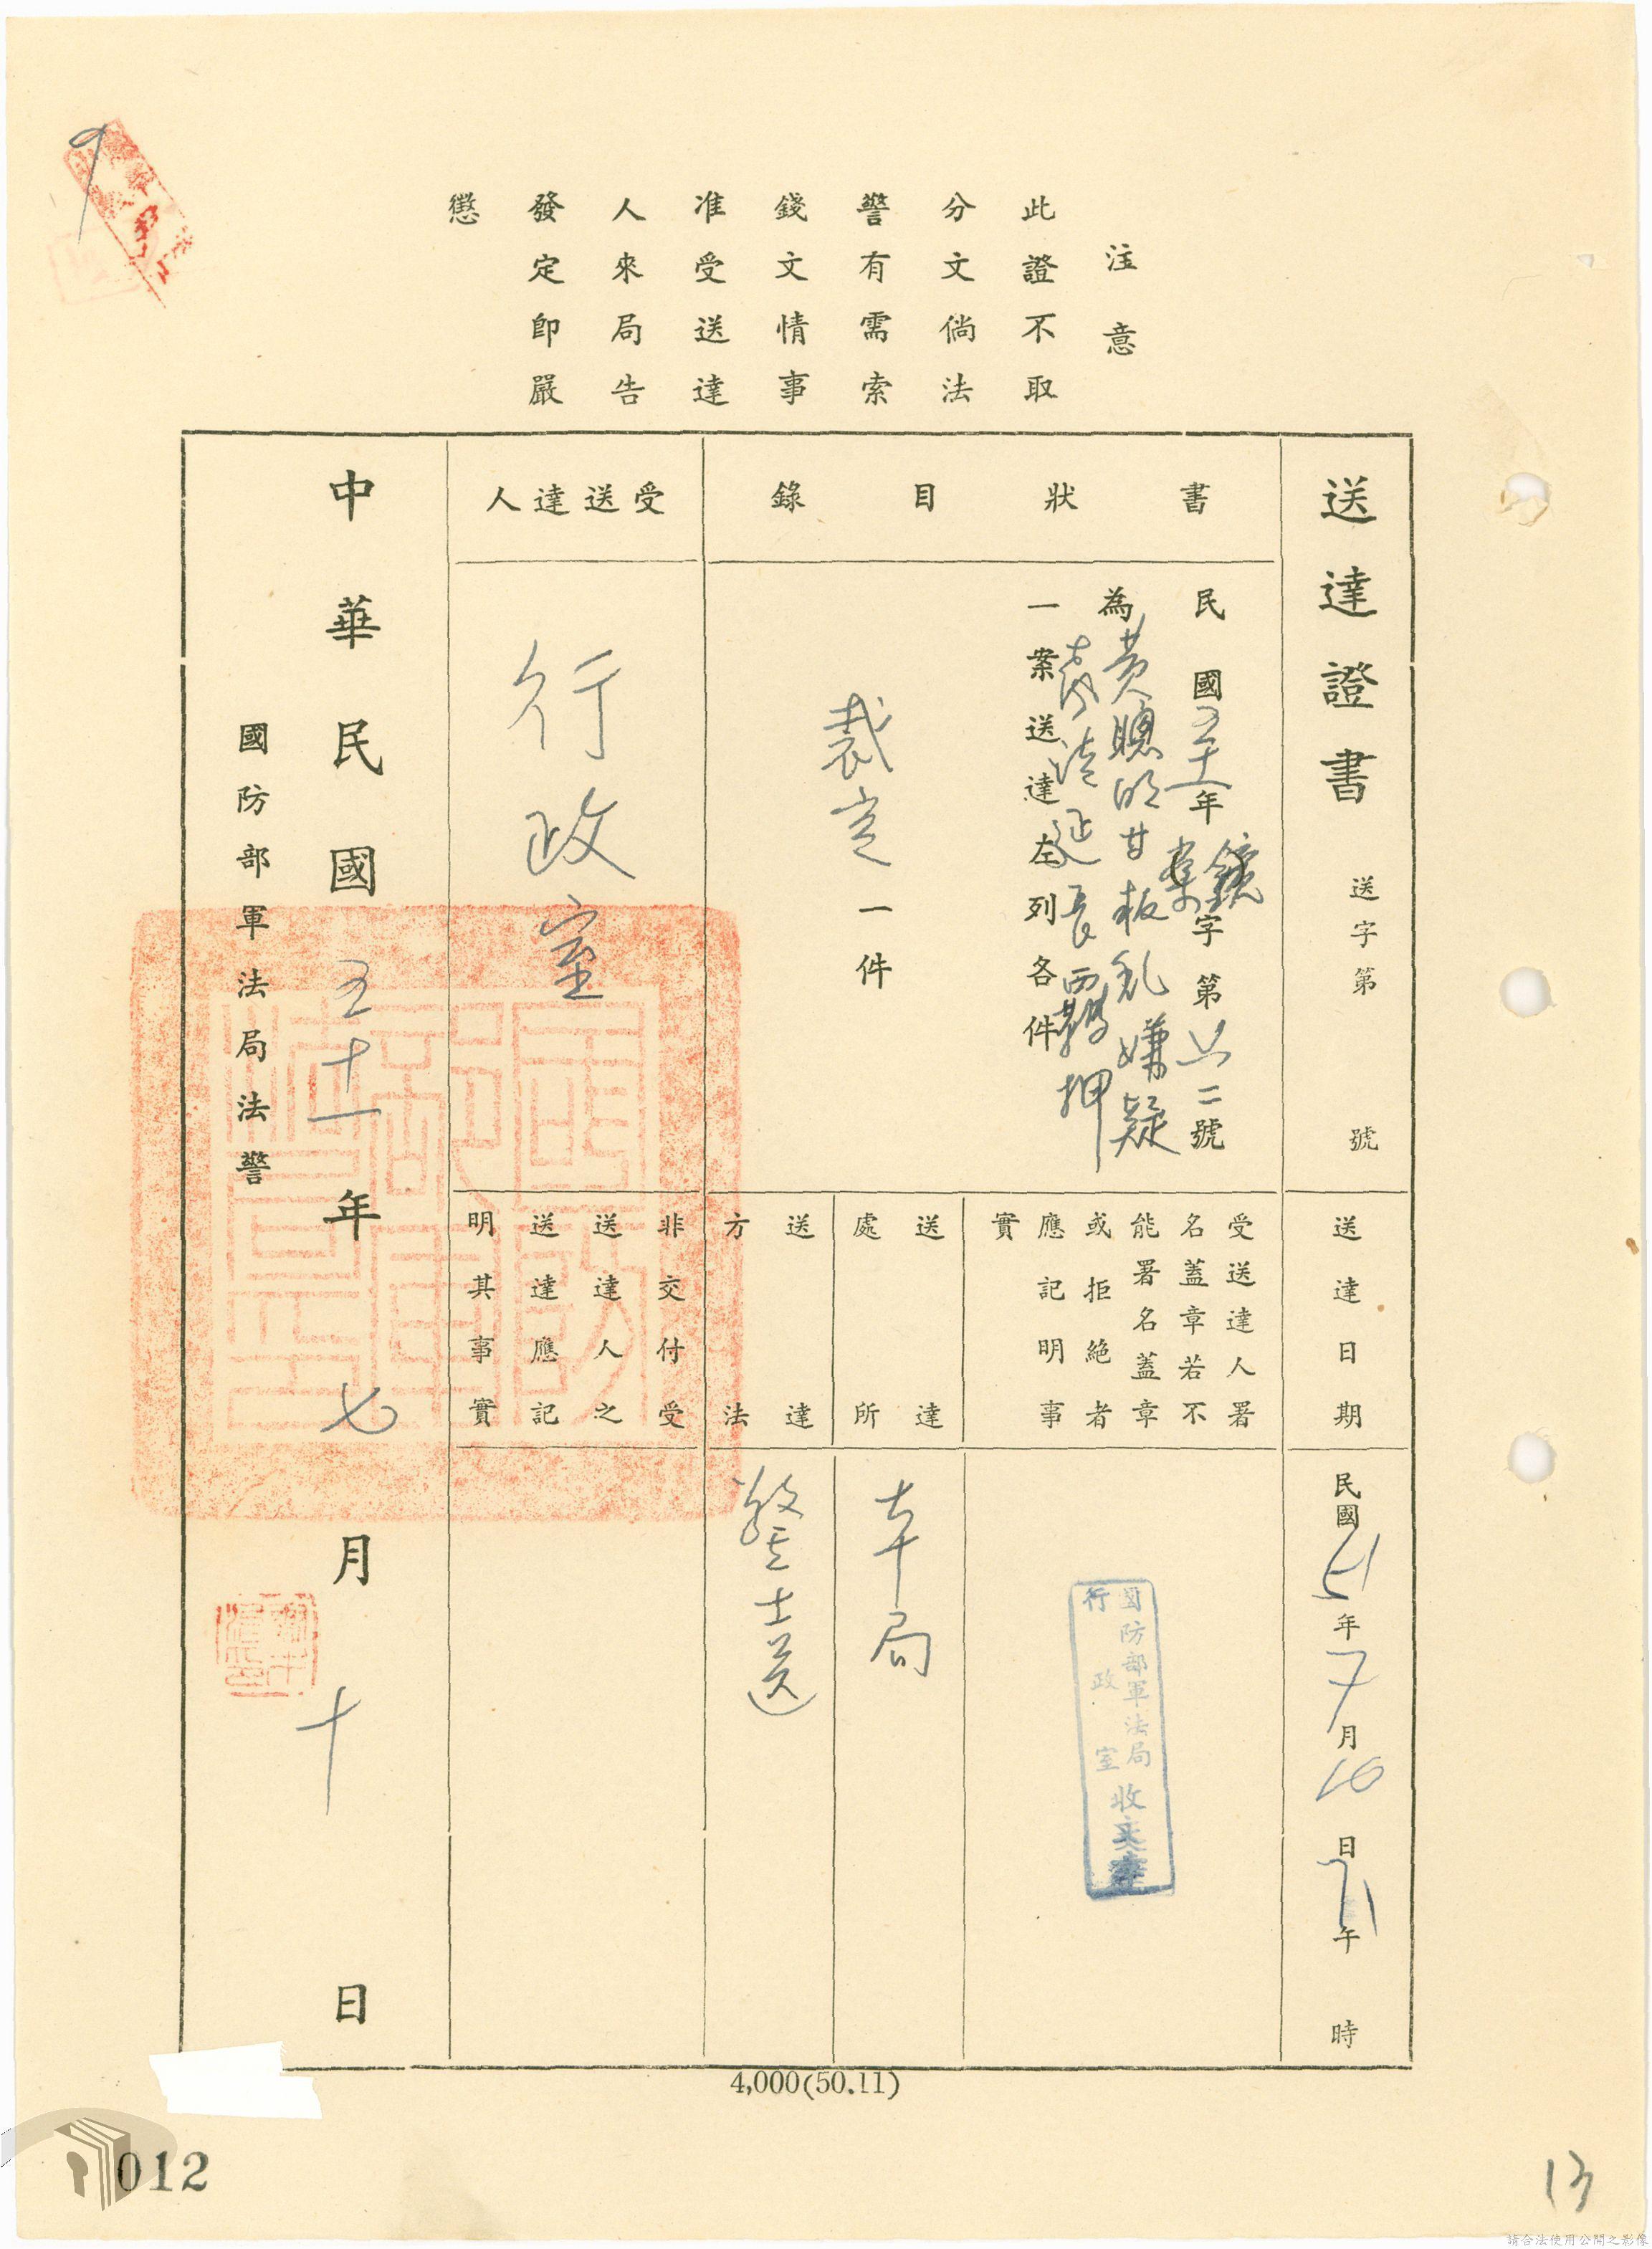 注意
此證不取
分文倘法
警有需索
錢文情事
准受送達
人來局告
發定即嚴
懲
送達證書 送字第 號
送達日期
民國51年7月10日 午 時
書狀目錄
民國五十一年 字第 二號
為黃聰明甘叛乱嫌疑
延長羈押
一案送達左列各件
裁定一件
受送達人署
名蓋章若不
能署名蓋章
或拒絕者
應記明事
實
國防部軍法局
行政室
收文章
送達
處所
本局
送達
方法
警士送
受送達人
行政室
非交付受
送達人之
送達應記
明其事實
中華民國五十一年七月十日
國防部軍法局法警
4,000(50.11)
012
13
請合法使用公開之影像